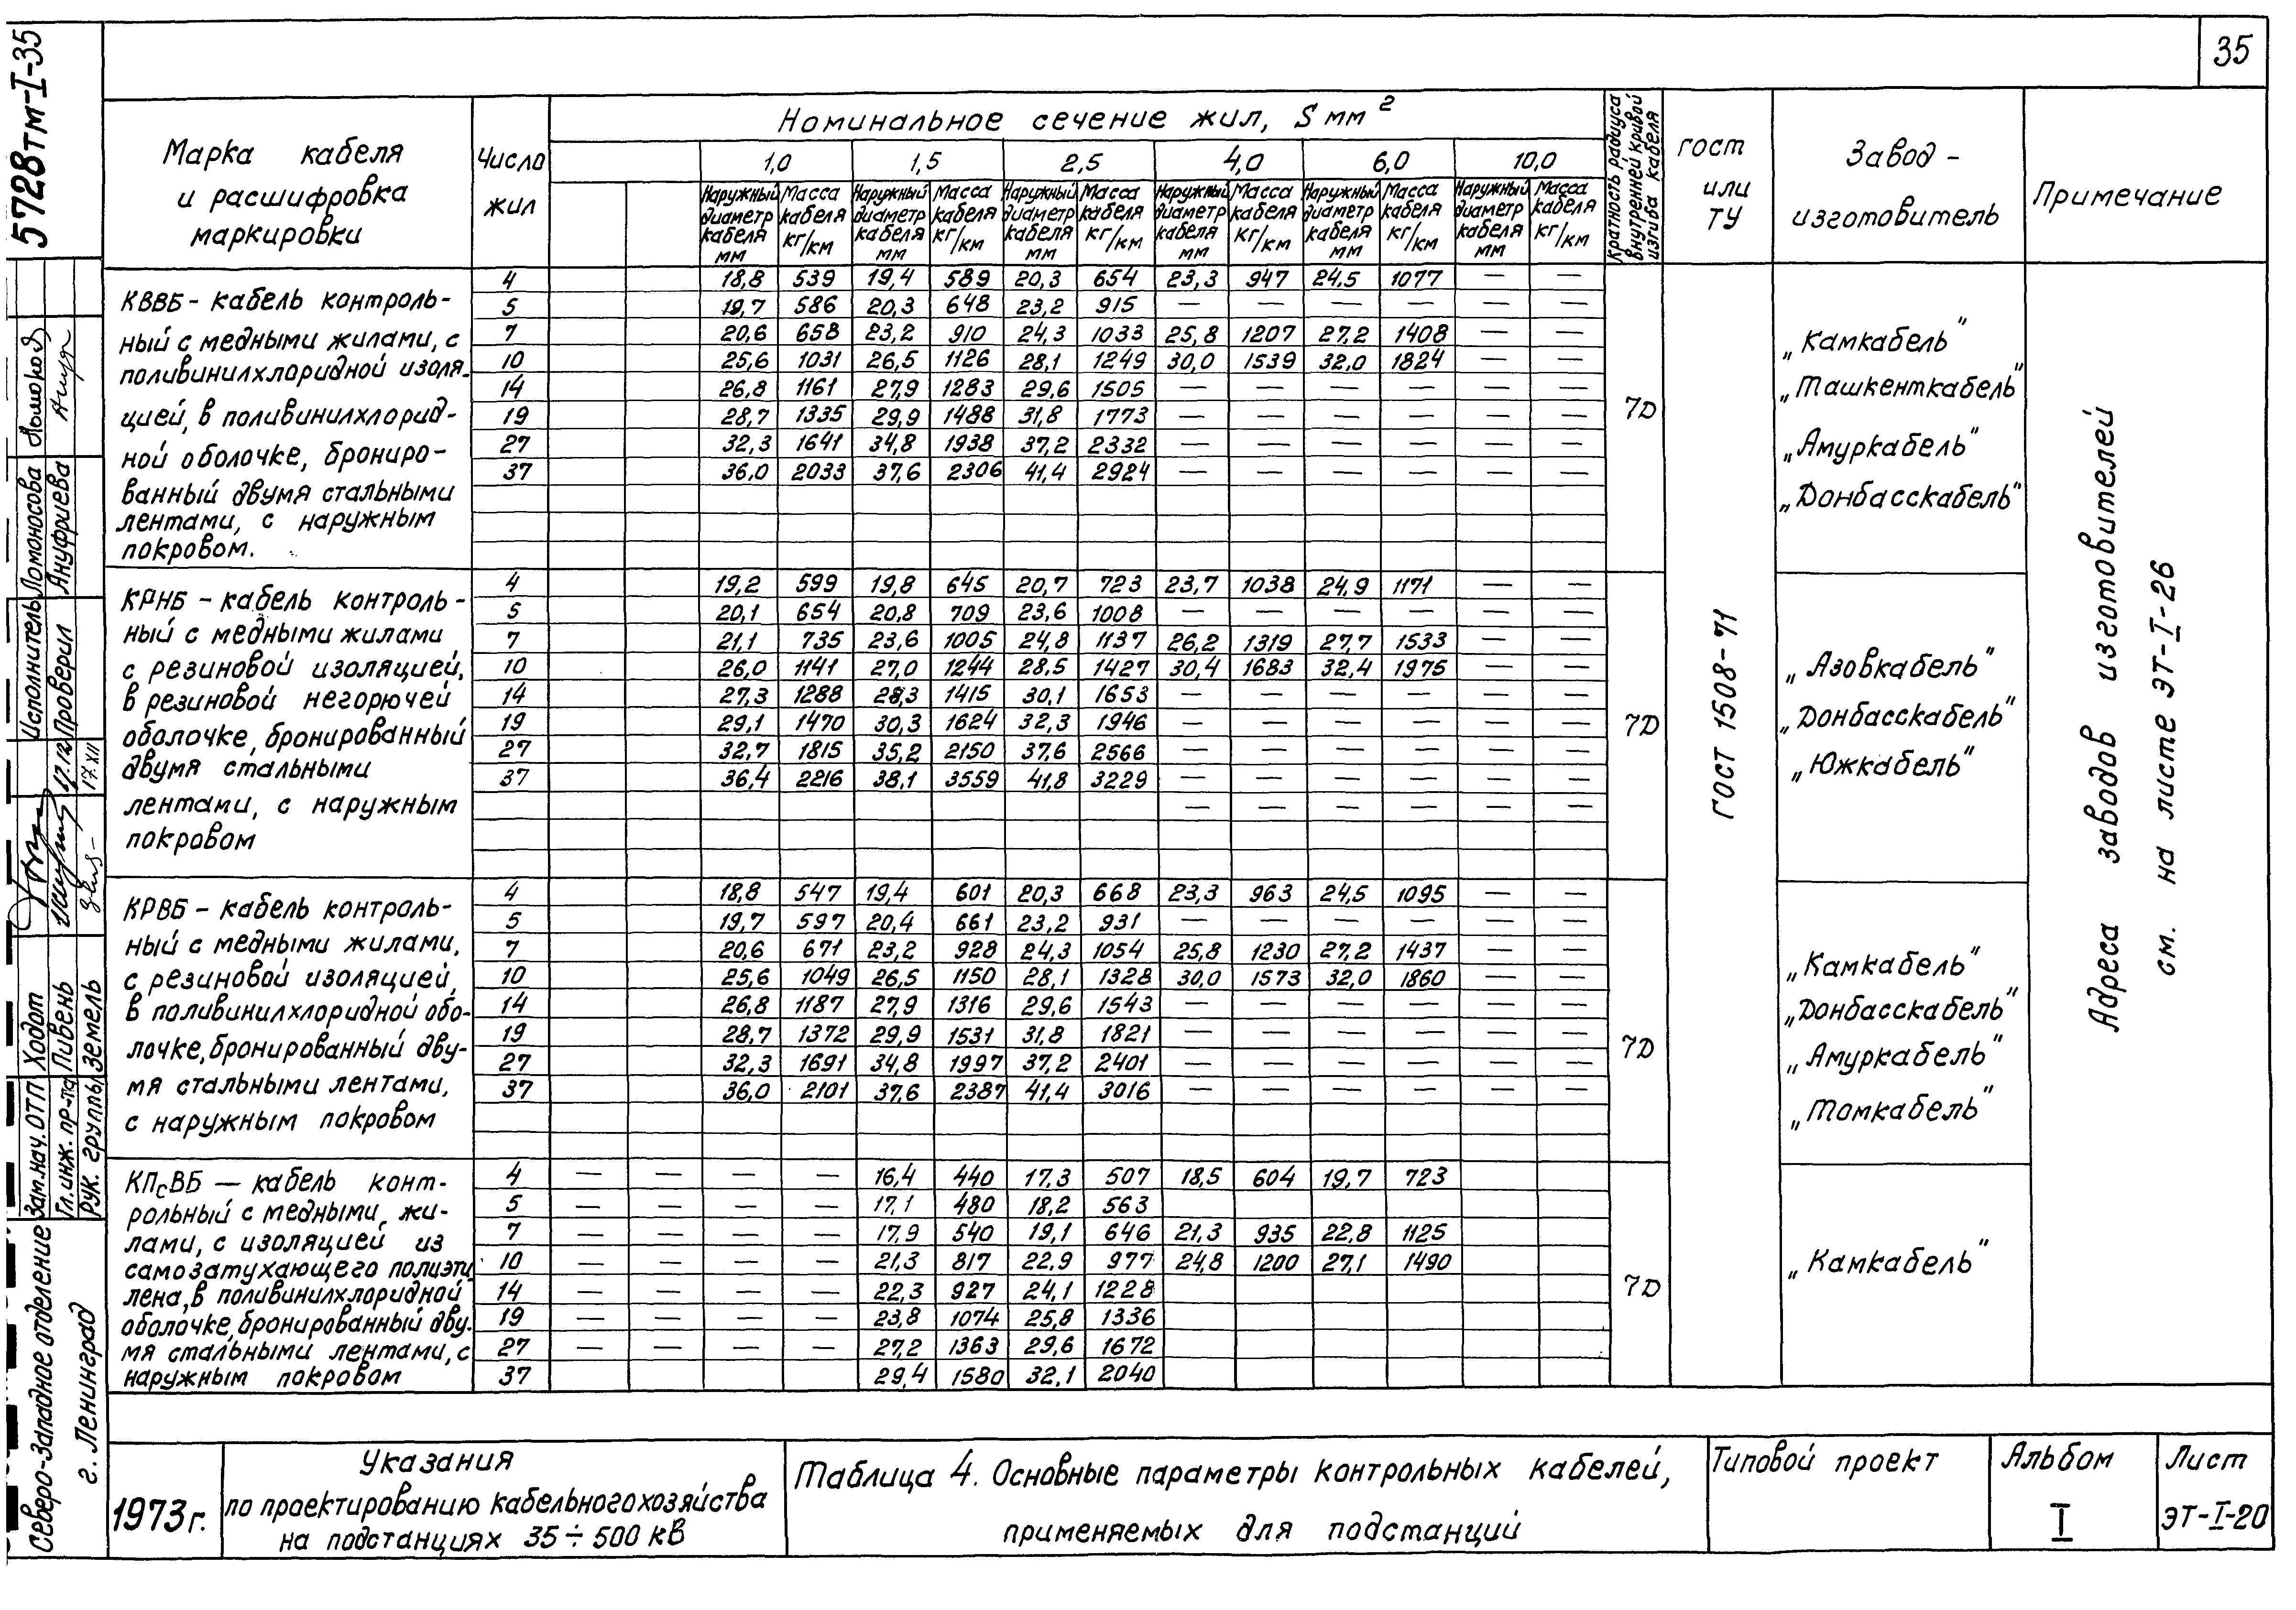 35
5728тм-I-35
Марка кабеля
и расшифровка
маркировки
Число
жил
Номинальное сечение жил, S мм²
1,0 1,5 2,5 4,0 6,0 10,0
Наружный диаметр кабеля мм Масса кабеля кг/км Наружный диаметр кабеля мм Масса кабеля кг/км Наружный диаметр кабеля мм Масса кабеля кг/км Наружный диаметр кабеля мм Масса кабеля кг/км Наружный диаметр кабеля мм Масса кабеля кг/км Наружный диаметр кабеля мм Масса кабеля кг/км
Кратность радиуса
внутренней кривой
изгиба кабеля
ГОСТ
или
ТУ
Завод -
изготовитель
Примечание
КВВБ - кабель контроль-
ный с медными жилами, с
поливинилхлоридной изоля-
цией, в поливинилхлорид-
ной оболочке, брониро-
ванный двумя стальными
лентами, с наружным
покровом.
4 18,8 539 19,4 589 20,3 654 23,3 947 24,5 1077 — —
5 19,7 586 20,3 648 23,2 915 — — — — — —
7 20,6 658 23,2 910 24,3 1033 25,8 1207 27,2 1408 — —
10 25,6 1031 26,5 1126 28,1 1249 30,0 1539 32,0 1824 — —
14 26,8 1161 27,9 1283 29,6 1505 — — — — — —
19 28,7 1335 29,9 1488 31,8 1773 — — — — — —
27 32,3 1641 34,8 1938 37,2 2332 — — — — — —
37 36,0 2033 37,6 2306 41,4 2924 — — — — — —
7D
„Камкабель"
„Ташкенткабель"
„Амуркабель"
„Донбасскабель"
КРНБ - кабель контроль-
ный с медными жилами
с резиновой изоляцией,
в резиновой негорючей
оболочке, бронированный
двумя стальными
лентами, с наружным
покровом
4 19,2 599 19,8 645 20,7 723 23,7 1038 24,9 1171 — —
5 20,1 654 20,8 709 23,6 1008 — — — — — —
7 21,1 735 23,6 1005 24,8 1137 26,2 1319 27,7 1533 — —
10 26,0 1141 27,0 1244 28,5 1427 30,4 1683 32,4 1975 — —
14 27,3 1288 28,3 1415 30,1 1653 — — — — — —
19 29,1 1470 30,3 1624 32,3 1946 — — — — — —
27 32,7 1815 35,2 2150 37,6 2566 — — — — — —
37 36,4 2216 38,1 3559 41,8 3229 — — — — — —
— — — — — —
7D
„Азовкабель"
„Донбасскабель"
„Южкабель"
КРВБ - кабель контроль-
ный с медными жилами,
с резиновой изоляцией,
в поливинилхлоридной обо-
лочке, бронированный дву-
мя стальными лентами,
с наружным покровом
4 18,8 547 19,4 601 20,3 668 23,3 963 24,5 1095 — —
5 19,7 597 20,4 661 23,2 931 — — — — — —
7 20,6 671 23,2 928 24,3 1054 25,8 1230 27,2 1437 — —
10 25,6 1049 26,5 1150 28,1 1328 30,0 1573 32,0 1860 — —
14 26,8 1187 27,9 1316 29,6 1543 — — — — — —
19 28,7 1372 29,9 1531 31,8 1821 — — — — — —
27 32,3 1691 34,8 1997 37,2 2401 — — — — — —
37 36,0 2101 37,6 2387 41,4 3016 — — — — — —
7D
„Камкабель"
„Донбасскабель"
„Амуркабель"
„Томкабель"
КПсВБ — кабель конт-
рольный с медными, жи-
лами, с изоляцией из
самозатухающего полиэти
лена, в поливинилхлоридной
оболочке, бронированный дву-
мя стальными лентами, с
наружным покровом
4 — — — — 16,4 440 17,3 507 18,5 604 19,7 723
5 — — — — 17,1 480 18,2 563
7 — — — — 17,9 540 19,1 646 21,3 935 22,8 1125
10 — — — — 21,3 817 22,9 977 24,8 1200 27,1 1490
14 — — — — 22,3 927 24,1 1228
19 — — — — 23,8 1074 25,8 1336
27 — — — — 27,2 1363 29,6 1672
37 29,4 1580 32,1 2040
7D
„Камкабель"
ГОСТ 1508-71
Адреса заводов изготовителей
см. на листе ЭТ-I-26
Исполнитель Ломоносова
Проверил Ануфриева
17.XII
Зам.нач. ОТП Ходот
Гл.инж. пр-та Пивень
Рук. группы Земель
Северо-Западное отделение
г. Ленинград
1973г.
Указания
по проектированию кабельного хозяйства
на подстанциях 35÷500 кВ
Таблица 4. Основные параметры контрольных кабелей,
применяемых для подстанций
Типовой проект
Альбом
I
Лист
ЭТ-I-20